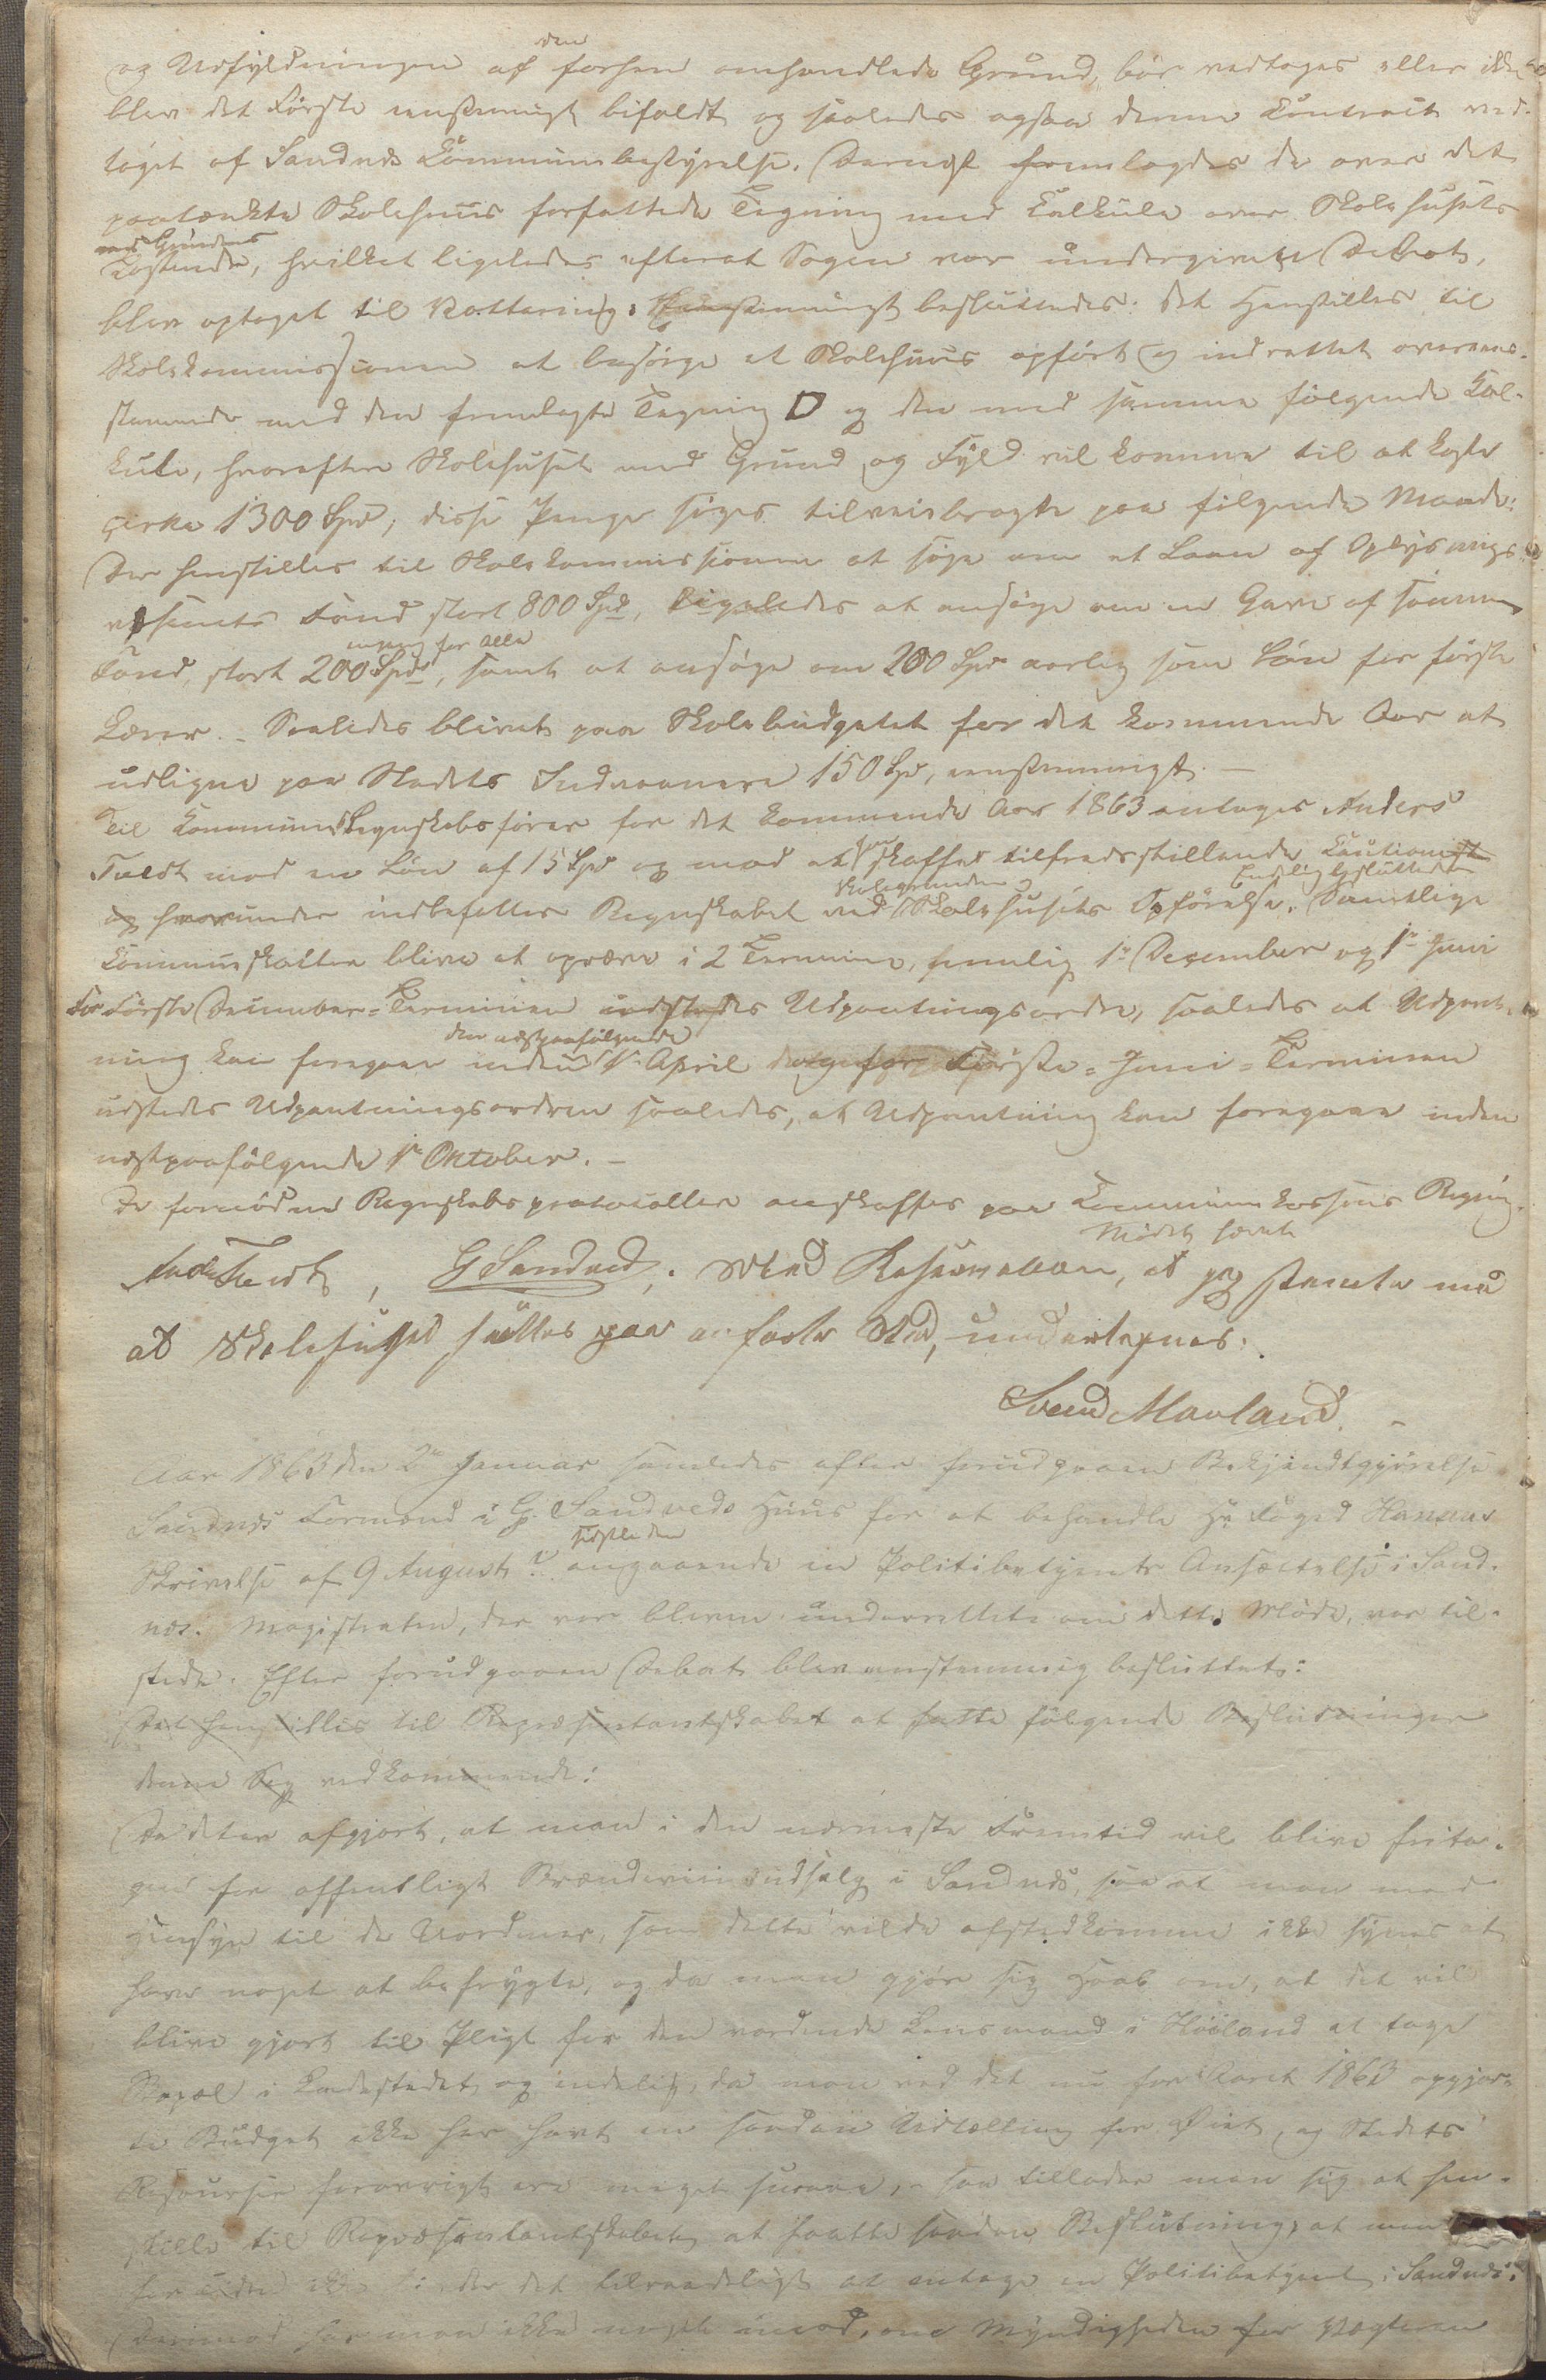 og Udfyldningen af den forhen omhandlede Grund, bør vedtages eller ikke
blev det Første eenstemmigt bifaldt og saaledes ogsaa denne Contract ved-
taget af Sandnes Kommunebestyrelse. Dernæst fremlagdes de over det
paatænkte Skolehuus forfattede Tegning med Calkule over Skolehusets
med Grundens
Kostende, hvilket ligeledes efterat Sagen var undergivet Debat,
blev optaget til Vottering. Eenstemmigt besluttedes: Det henstilles til
Skolekommissionen at besørge et Skolehuus opført og indrettet overeens-
stemmende med den fremlagte Tegning D og den med samme følgende Kal-
kule, hvorefter Skolehuset med Grund og Fyld vil komme til at koste
cirka 1300 Spd, disse Penge søges tilveiebragte paa følgende Maade:
Der henstilles til Skolekommissionen at søge om et Laan af Oplysnings-
væsenets Fond stort 800 Spd, ligeledes at ansøge om en Gave af samme
Fond, stort 200 Spd engang for alle, samt at ansøge om 200 Spd aarlig som Løn for første
Lærer. Saaledes blivet paa Skolebudgetet for det kommende Aar at
udligne paa Stedets Indvaanere 150 Spd, eenstemmigt. —
Til Kommune Regnskabsfører for det kommende Aar 1863 antages Anders
Tvedt mod en Løn af 15 Spd og mod at han skaffer tilfredsstillende Caution
og hvorunder indbefattes Regnskabet ved Skolegrunden og Skolehusets Opførelse. Endelig besluttedes Samtlige
Kommuneskatter blive at opræve i 2 Terminer, nemlig 1ste December og 1ste Juni
For Første December-Terminen udstedes Udpantningsordre, saaledes at Udpant-
ning kan foregaa inden den næstpaafølgende 1ste April Første-Juni-Terminen
udstedes Udpantningsordren saaledes, at Udpantning kan foregaa inden
næstpaafølgende 1ste Oktober. —
De fornødne Regnskabsprotocoller anskaffes paa Kommunekassens Regning.
Mødet hævet
Ands Tvedt, G Sandved, . Med Reservation, at jeg stemte mod
at Skolehuset sættes paa anførte Sted, undertegnes.
Svend Mauland. –
Aar 1863 den 2de Januar samledes efter forudgaaen Bekjendtgjørelse
Sandnes Formænd i G. Sandveds Huus for at behandle Hr Foged Hanssens
Skrivelse af 9 August sidstleden angaaende en Politibetjents Ansættelse i Sand-
nes. Magistraten, der var bleven underrettet om dette Møde, var til-
stede. Efter forudgaaen Debat blev eenstemmig besluttet:
Det henstilles til Repræsentantskabet at fatte følgende Beslutninger
denne Sag vedkommende:
Da det er afgjort, at man i den nærmeste Fremtid vil blive frita-
gen for offentligt Brændeviinsudsalg i Sandnes, saa at man med
Hensyn til de Uordner, som dette vilde afstedkomme ikke synes at
have noget at befrygte, og da man gjør sig Haab om, at det vil
blive gjort til Pligt for den vordende Lensmand i Høiland at tage
Bopæl i Ladestedet og endelig, da man ved det nu for Aaret 1863 opgjor-
te Budget ikke har havt en saadan Udtælling for Øiet, og Stedets
Resourser forøvrigt ere meget smaa, – saa tillader man sig at hen-
stille til Repræsentantskabet at fatte saadan Beslutning, at man
for Tiden ikke finder det tilraadeligt at antage en Politibetjent i Sandnes.
Derimod har man ikke noget imod, om Myndigheden for Vægteren